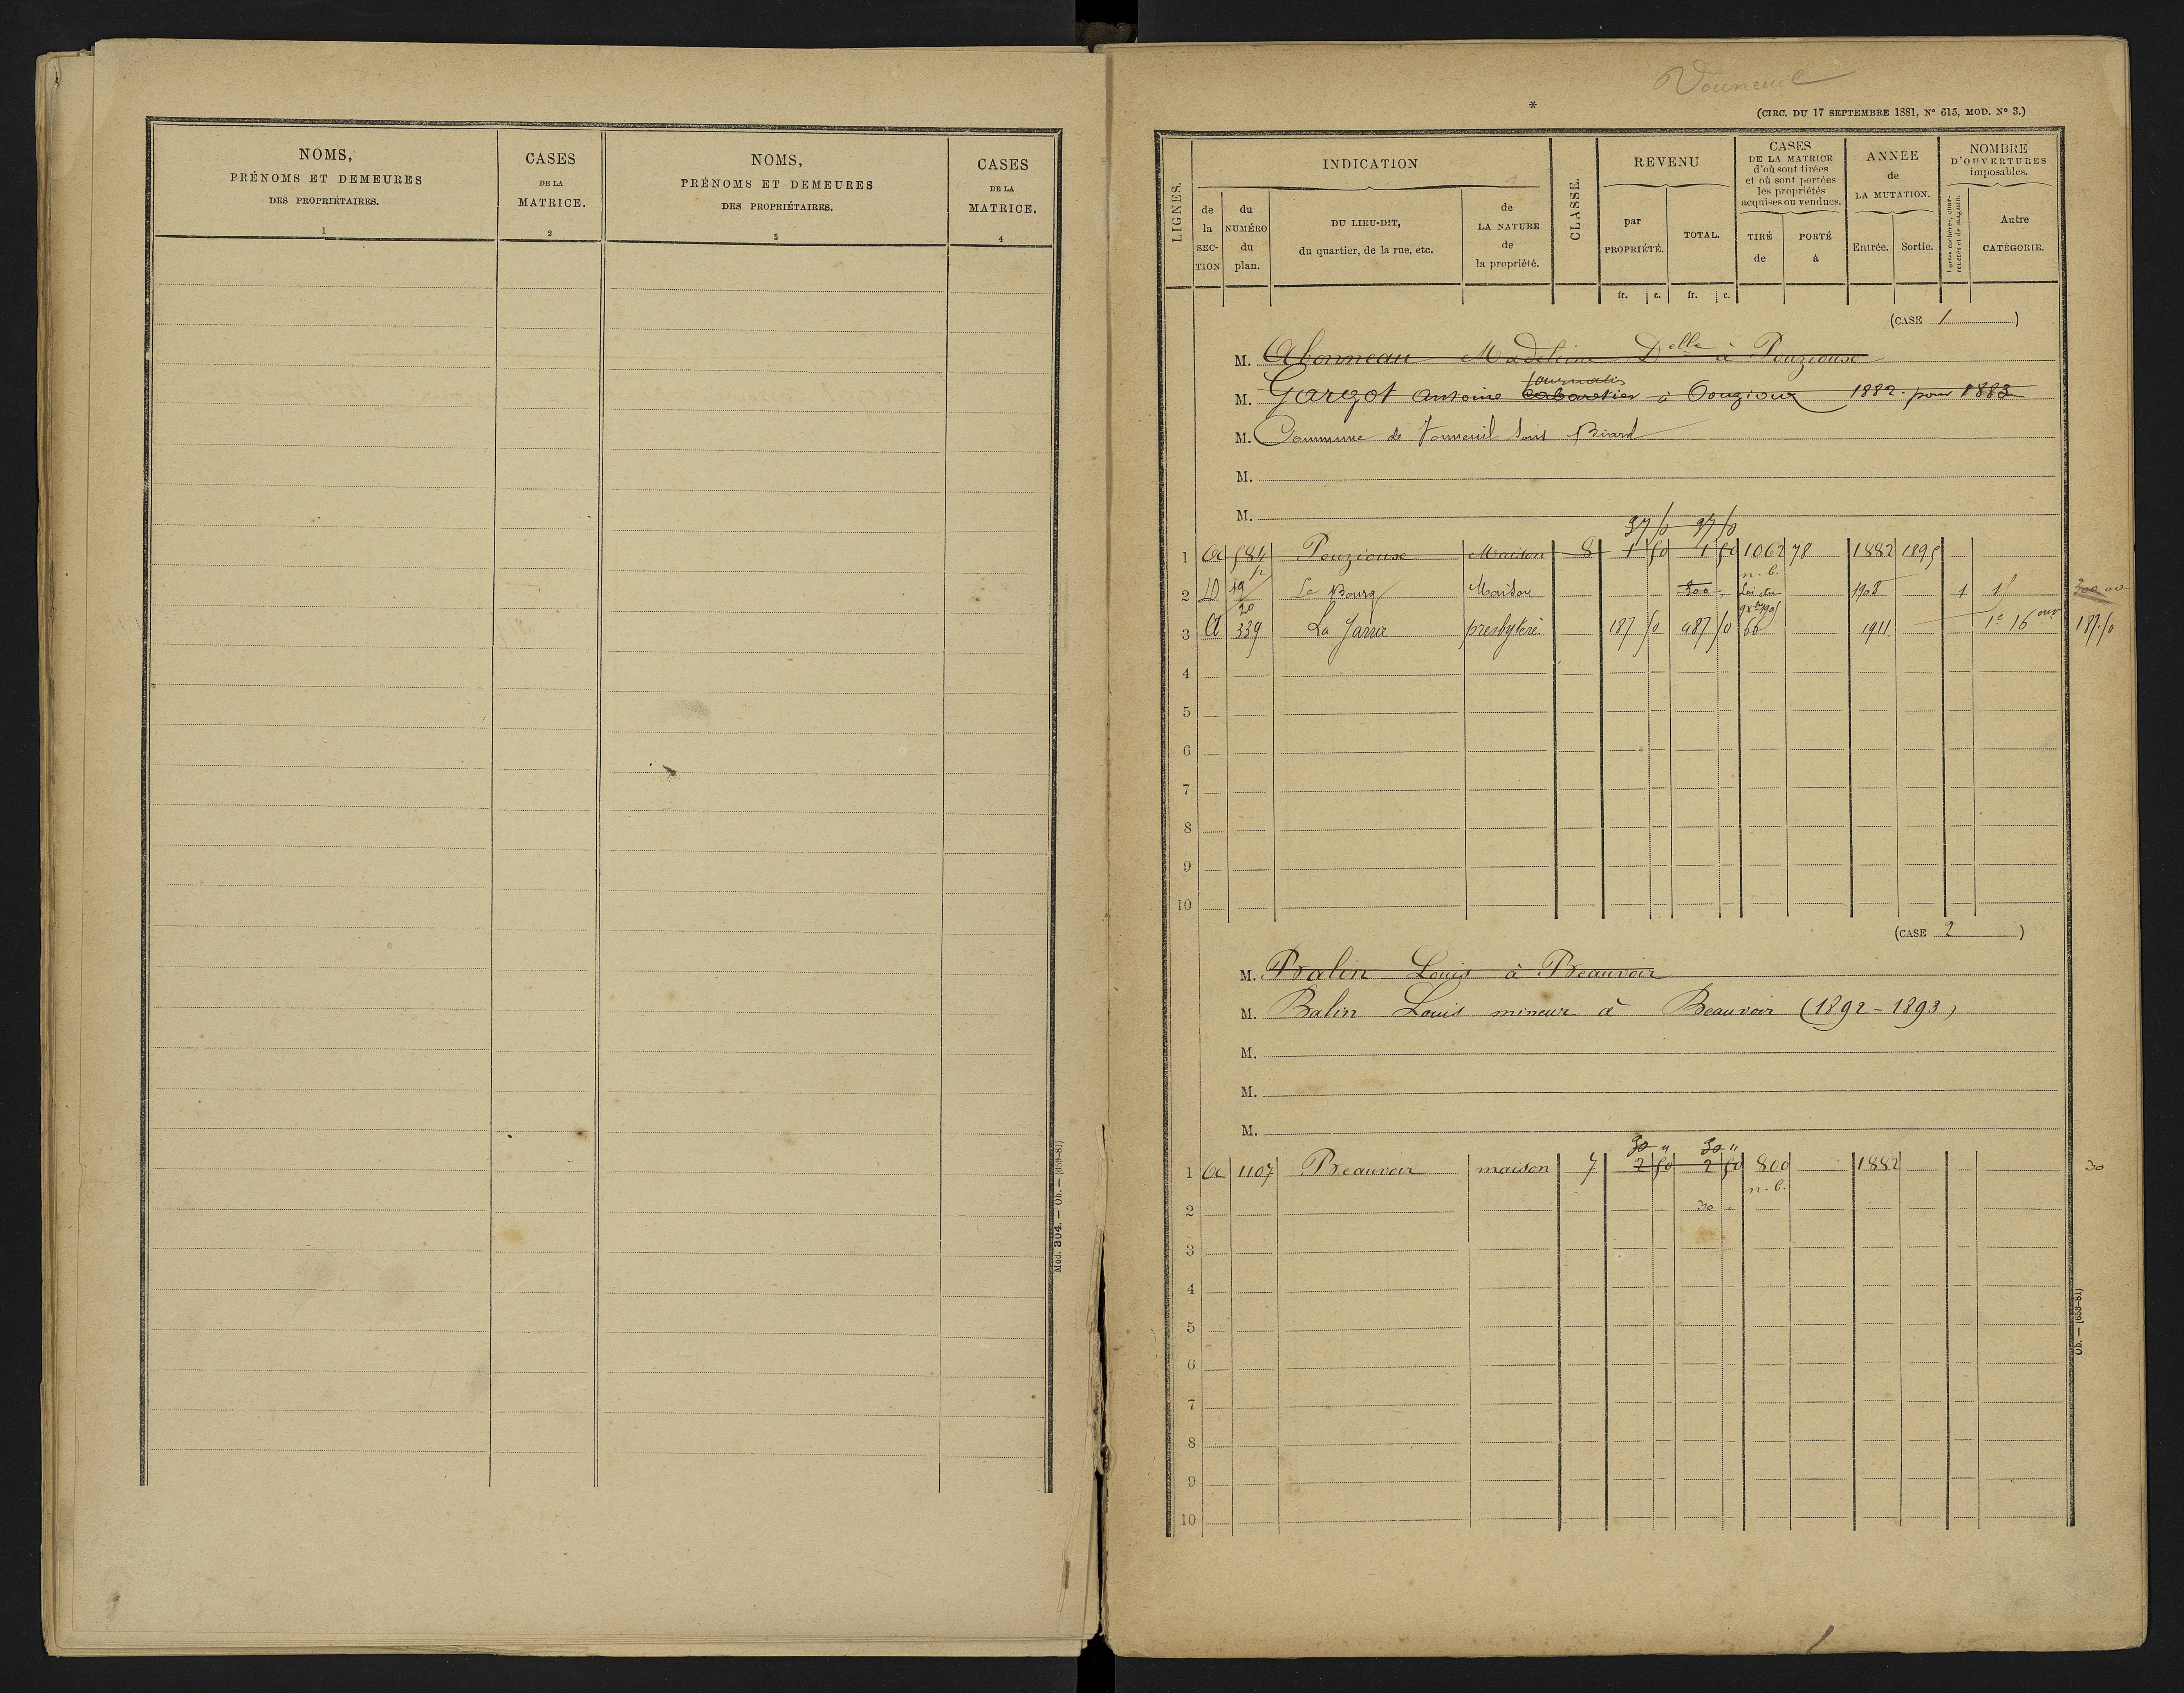 NOMS,
PRÉNOMS ET DEMEURES
DES PROPRIÉTAIRES.
1
CASES
DE LA
MATRICE.
2
NOMS,
PRÉNOMS ET DEMEURES
DES PROPRIÉTAIRES.
3
CASES
DE LA
MATRICE.
4
Mod. 804. — Ob. — (659-81)
Vouneuil
*
(CIRC. DU 17 SEPTEMBRE 1881, N° 615, MOD. N° 3.)
LIGNES.
INDICATION
de la SECTION
du NUMÉRO du plan.
DU LIEU-DIT,
du quartier, de la rue, etc.
de LA NATURE de la propriété.
CLASSE.
REVENU
par PROPRIÉTÉ.
TOTAL.
CASES
DE LA MATRICE
d'où sont tirées
et où sont portées
les propriétés
acquises ou vendues.
TIRÉ de
PORTÉ à
ANNÉE
de
LA MUTATION.
Entrée. Sortie.
NOMBRE
D'OUVERTURES
imposables.
Portes cochères, charretières et de magasin.
Autre
CATÉGORIE.
fr. c. fr. c.
(CASE 1)
M. Abonneau Madeleine Delle à Pouzioux
journalis
M. Gargot Antoine Cabaretier à Pouzioux 1882 pour 1883
M. Commune de Vouneuil sous Biard
M.
M.
37 50 37 50
1 584 Pouzioux Maison 8 1 50 1 50 1062 78 1882 1895
n. b.
2 D 19 Le Bourg Maison 300 Loi du 1908 1 15 300 00
20 9 xbre 1905
3 A 339 La Jarrie presbytère 187 50 487 50 66 1911 1c 16 ouv 187.50
4
5
6
7
8
9
10
(CASE 2)
M. Balin Louis à Beauvoir
M. Balin Louis mineur à Beauvoir (1892-1893)
M.
M.
M.
30 " 30 "
1 1107 Beauvoir maison 7 2 50 2 50 800 1882 30
n. b.
2 30
3
4
5
6
7
8
9
10
Ob. — (658-81)